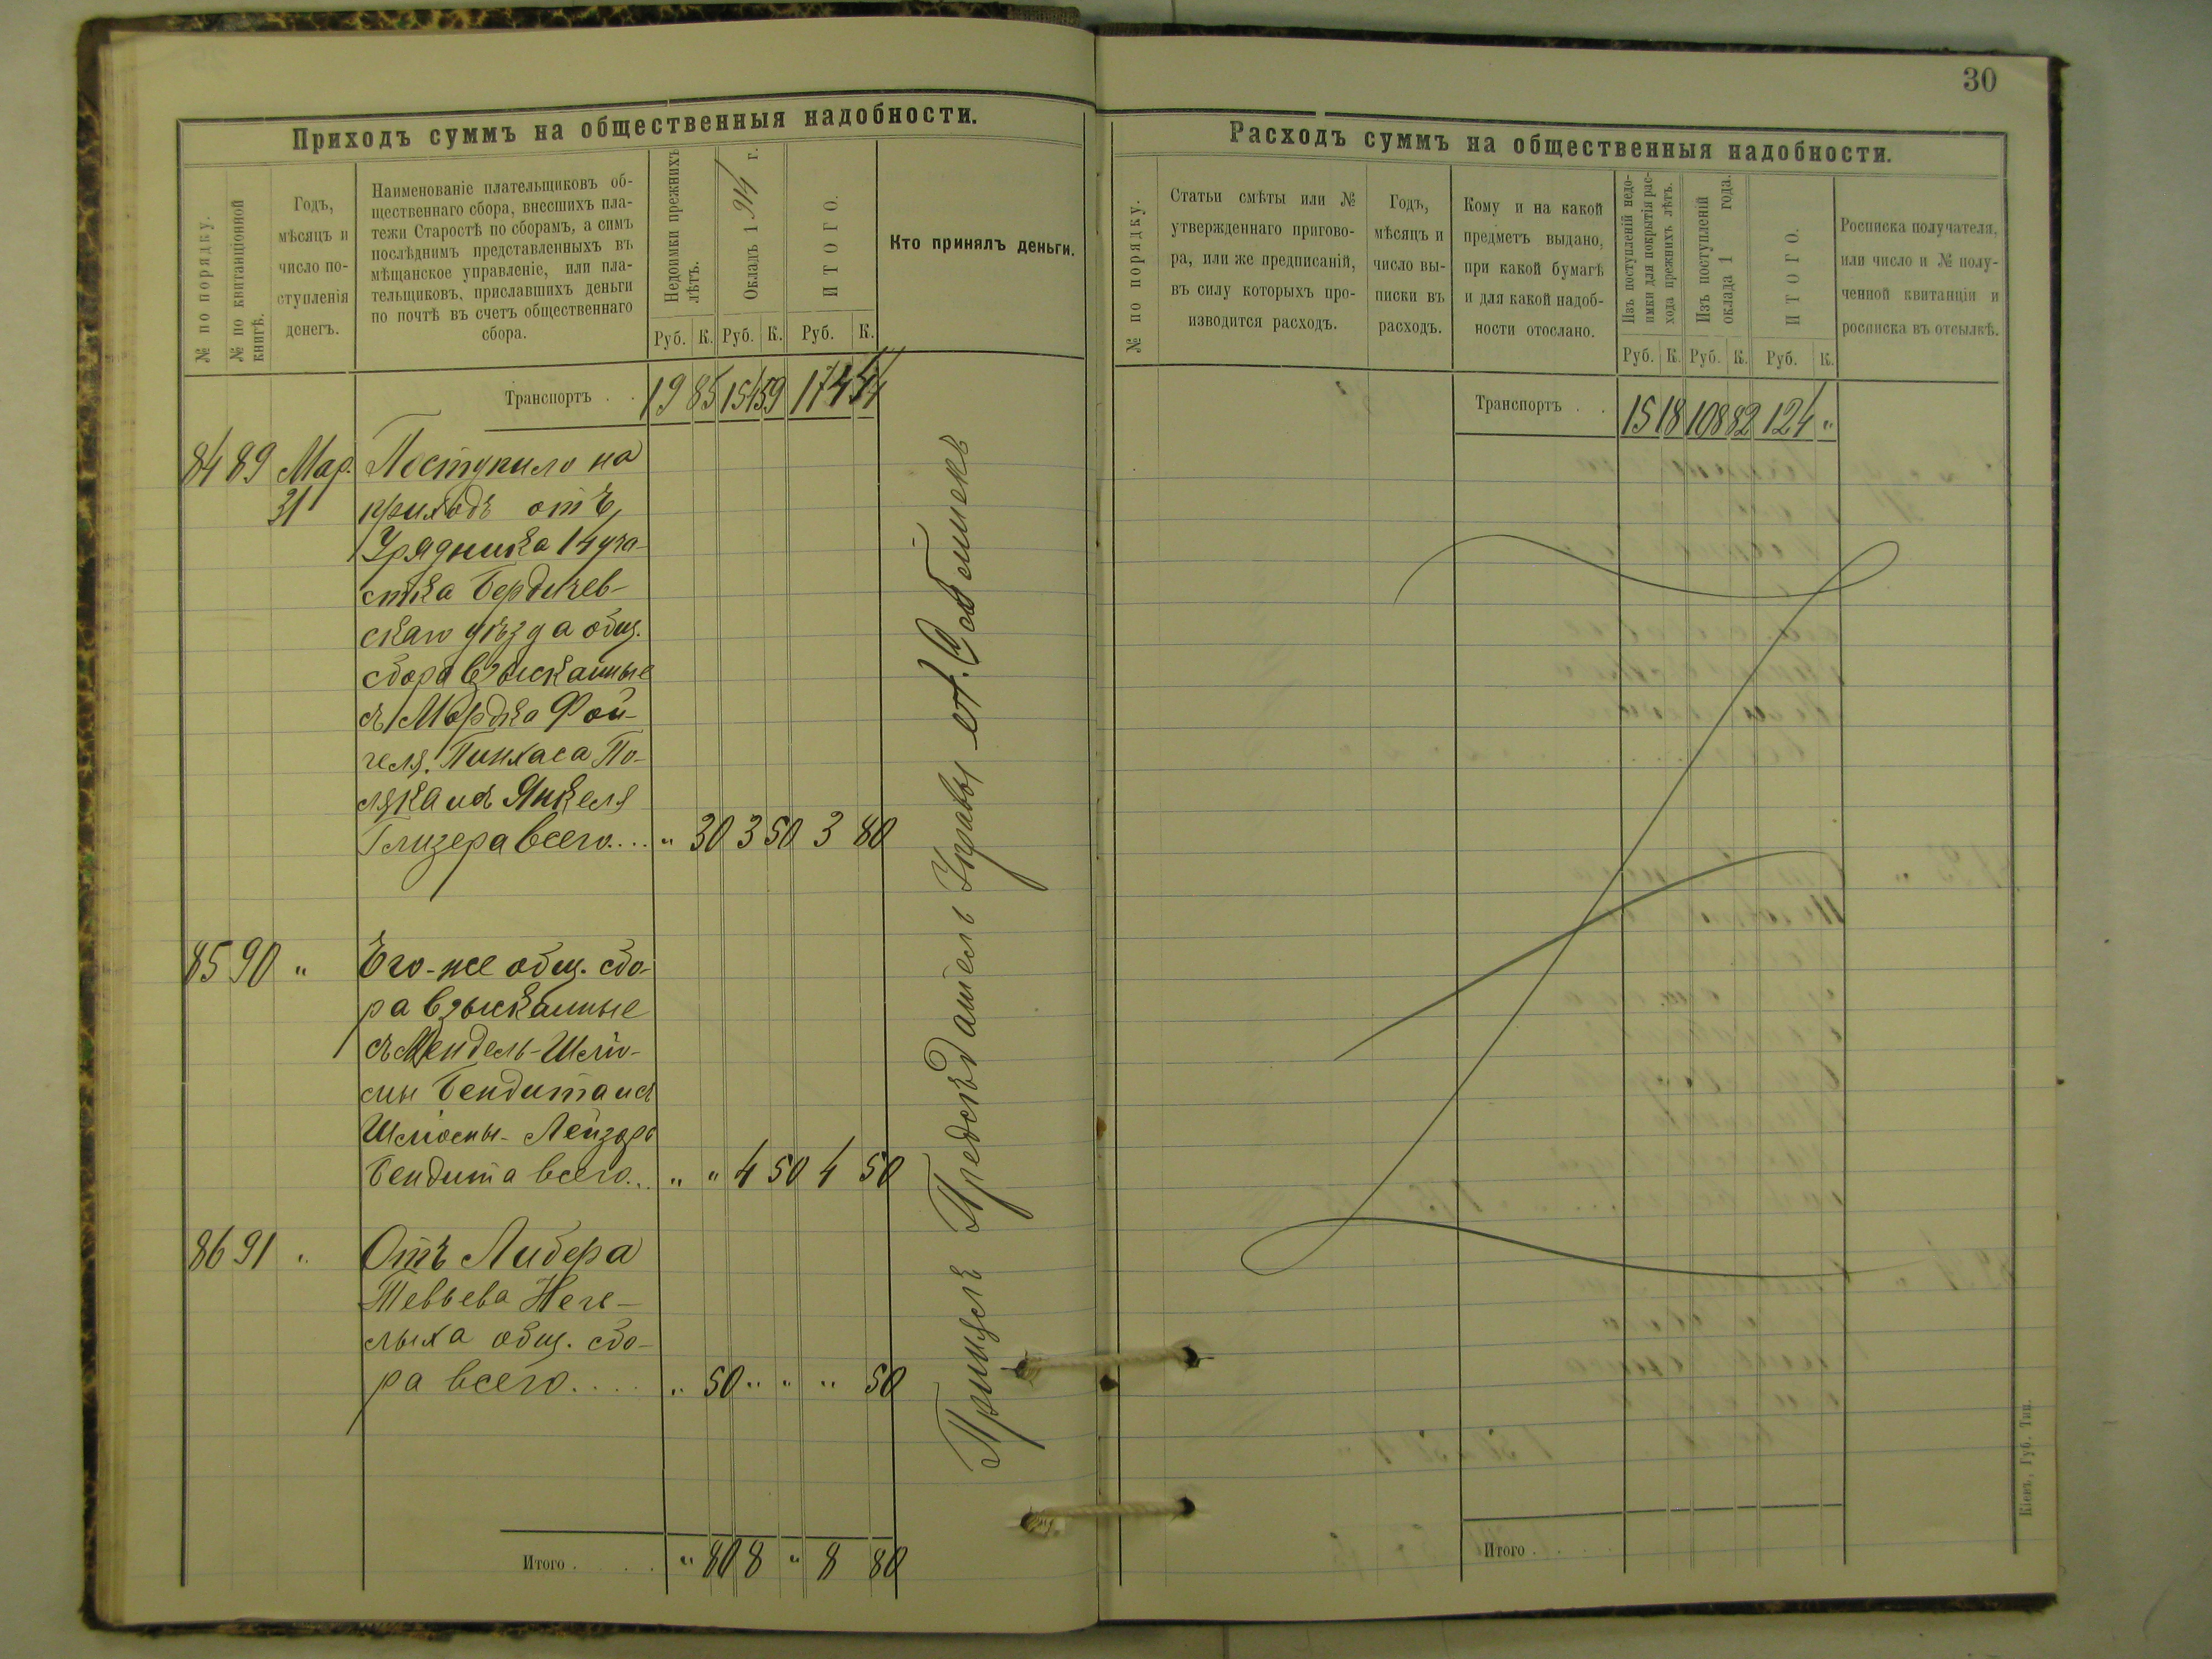 30
Приходъ суммъ на общественныя надобности.
№ по порядку.
№ по квитанціонной
книгѣ.
Годъ,
мѣсяцъ и
число по-
ступленія
денегъ.
Наименованіе плательщиковъ об-
щественнаго сбора, внесшихъ пла-
тежи Старостѣ по сборамъ, а симъ
послѣднимъ представленныхъ въ
мѣщанское управленіе, или пла-
тельщиковъ, приславшихъ деньги
по почтѣ въ счетъ общественнаго
сбора.
Недоимки прежнихъ
лѣтъ.
Окладъ 1914 г.
ИТОГО.
Кто принялъ деньги.
Руб. К. Руб. К. Руб. К.
Транспортъ . . 19 85 154 59 174 44
84 89 Мар. Поступило на
31 приходъ отъ
Урядника 14 уча-
стка Бердичев-
скаго уѣзда общ.
сбора взысканные
съ Мордка Фой-
геля, Пинхаса По-
ляка и съ Янкеля
Глизера всего.... " 30 3 50 3 80
85 90 " Его-же общ. сбо-
ра взысканные
съ Мендель-Шліо-
мы Бендита и съ
Шліомы-Лейзоръ
Бендита всего... " " 4 50 4 50
86 91 " Отъ Либера
Тевьева Неге-
лыха общ. сбо-
ра всего.... " 50 " " " 50
Итого . . . . " 80 8 " 8 80
Принялъ Предсѣдатель Управы
Расходъ суммъ на общественныя надобности.
№ по порядку.
Статьи смѣты или №
утвержденнаго пригово-
ра, или же предписаній,
въ силу которыхъ про-
изводится расходъ.
Годъ,
мѣсяцъ и
число вы-
писки въ
расходъ.
Кому и на какой
предметъ выдано,
при какой бумагѣ
и для какой надоб-
ности отослано.
Изъ поступленій недо-
имки для покрытія рас-
хода прежнихъ лѣтъ.
Изъ поступленій
оклада 1 года.
ИТОГО.
Росписка получателя,
или число и № полу-
ченной квитанціи и
росписка въ отсылкѣ.
Руб. К. Руб. К. Руб. К.
Транспортъ . . 15 18 108 82 124 "
Итого . . . .
Кіевъ, Губ. Тип.